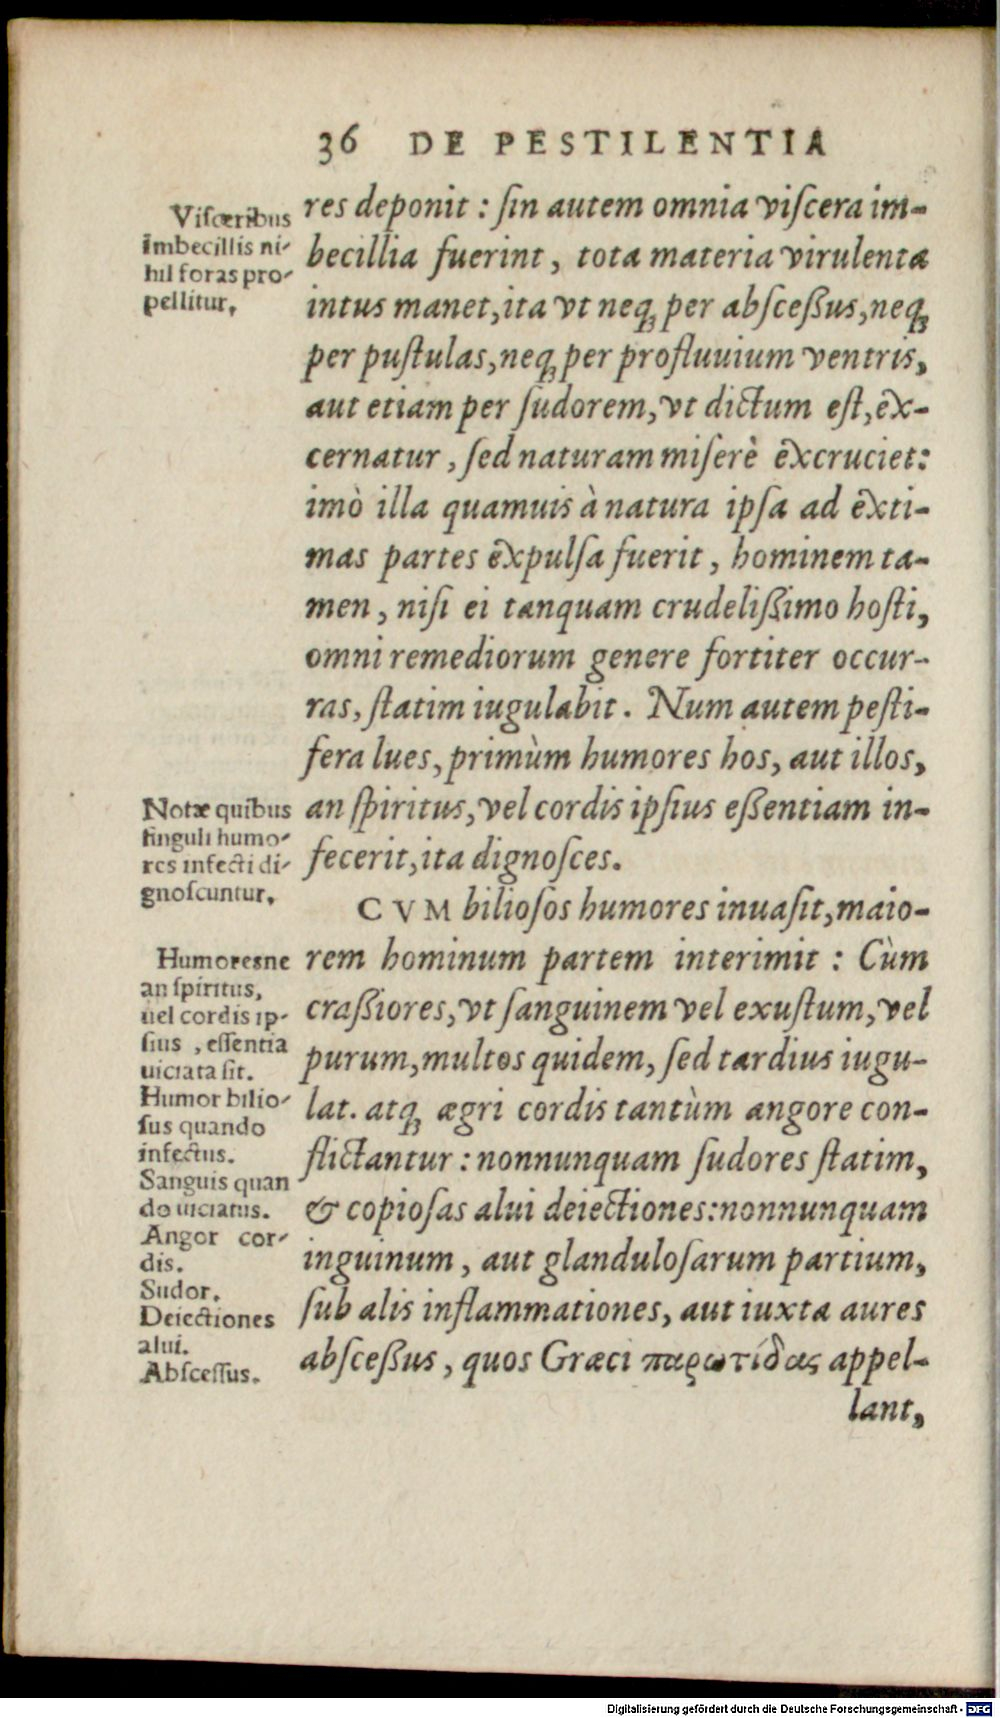 36 DE PESTILENTIA
Visceribus
imbecillis ni-
hil foras pro-
pellitur.
res deponit : sin autem omnia viscera im-
becillia fuerint, tota materia virulenta
intus manet, ita vt neq; per abscessus, neq;
per pustulas, neq; per profluuium ventris,
aut etiam per sudorem, vt dictum est, ex-
cernatur, sed naturam miserè excruciet:
imò illa quamuis à natura ipsa ad exti-
mas partes expulsa fuerit, hominem ta-
men, nisi ei tanquam crudelißimo hosti,
omni remediorum genere fortiter occur-
ras, statim iugulabit. Num autem pesti-
fera lues, primùm humores hos, aut illos,
an spiritus, vel cordis ipsius eßentiam in-
fecerit, ita dignosces.
Notæ quibus
singuli humo-
res infecti di-
gnoscuntur.
CVM biliosos humores inuasit, maio-
rem hominum partem interimit : Cùm
craßiores, vt sanguinem vel exustum, vel
purum, multos quidem, sed tardius iugu-
lat. atq; ægri cordis tantùm angore con-
flictantur : nonnunquam sudores statim,
& copiosas alui deiectiones: nonnunquam
inguinum, aut glandulosarum partium,
sub alis inflammationes, aut iuxta aures
absceßus, quos Græci παρωτίδας appel-
lant,
Humoresne
an spiritus,
uel cordis ip-
sius, essentia
uiciata sit.
Humor bilio-
sus quando
infectus.
Sanguis quan
do uiciatus.
Angor cor-
dis.
Sudor.
Deiectiones
alui.
Abscessus.
Digitalisierung gefördert durch die Deutsche Forschungsgemeinschaft - DFG